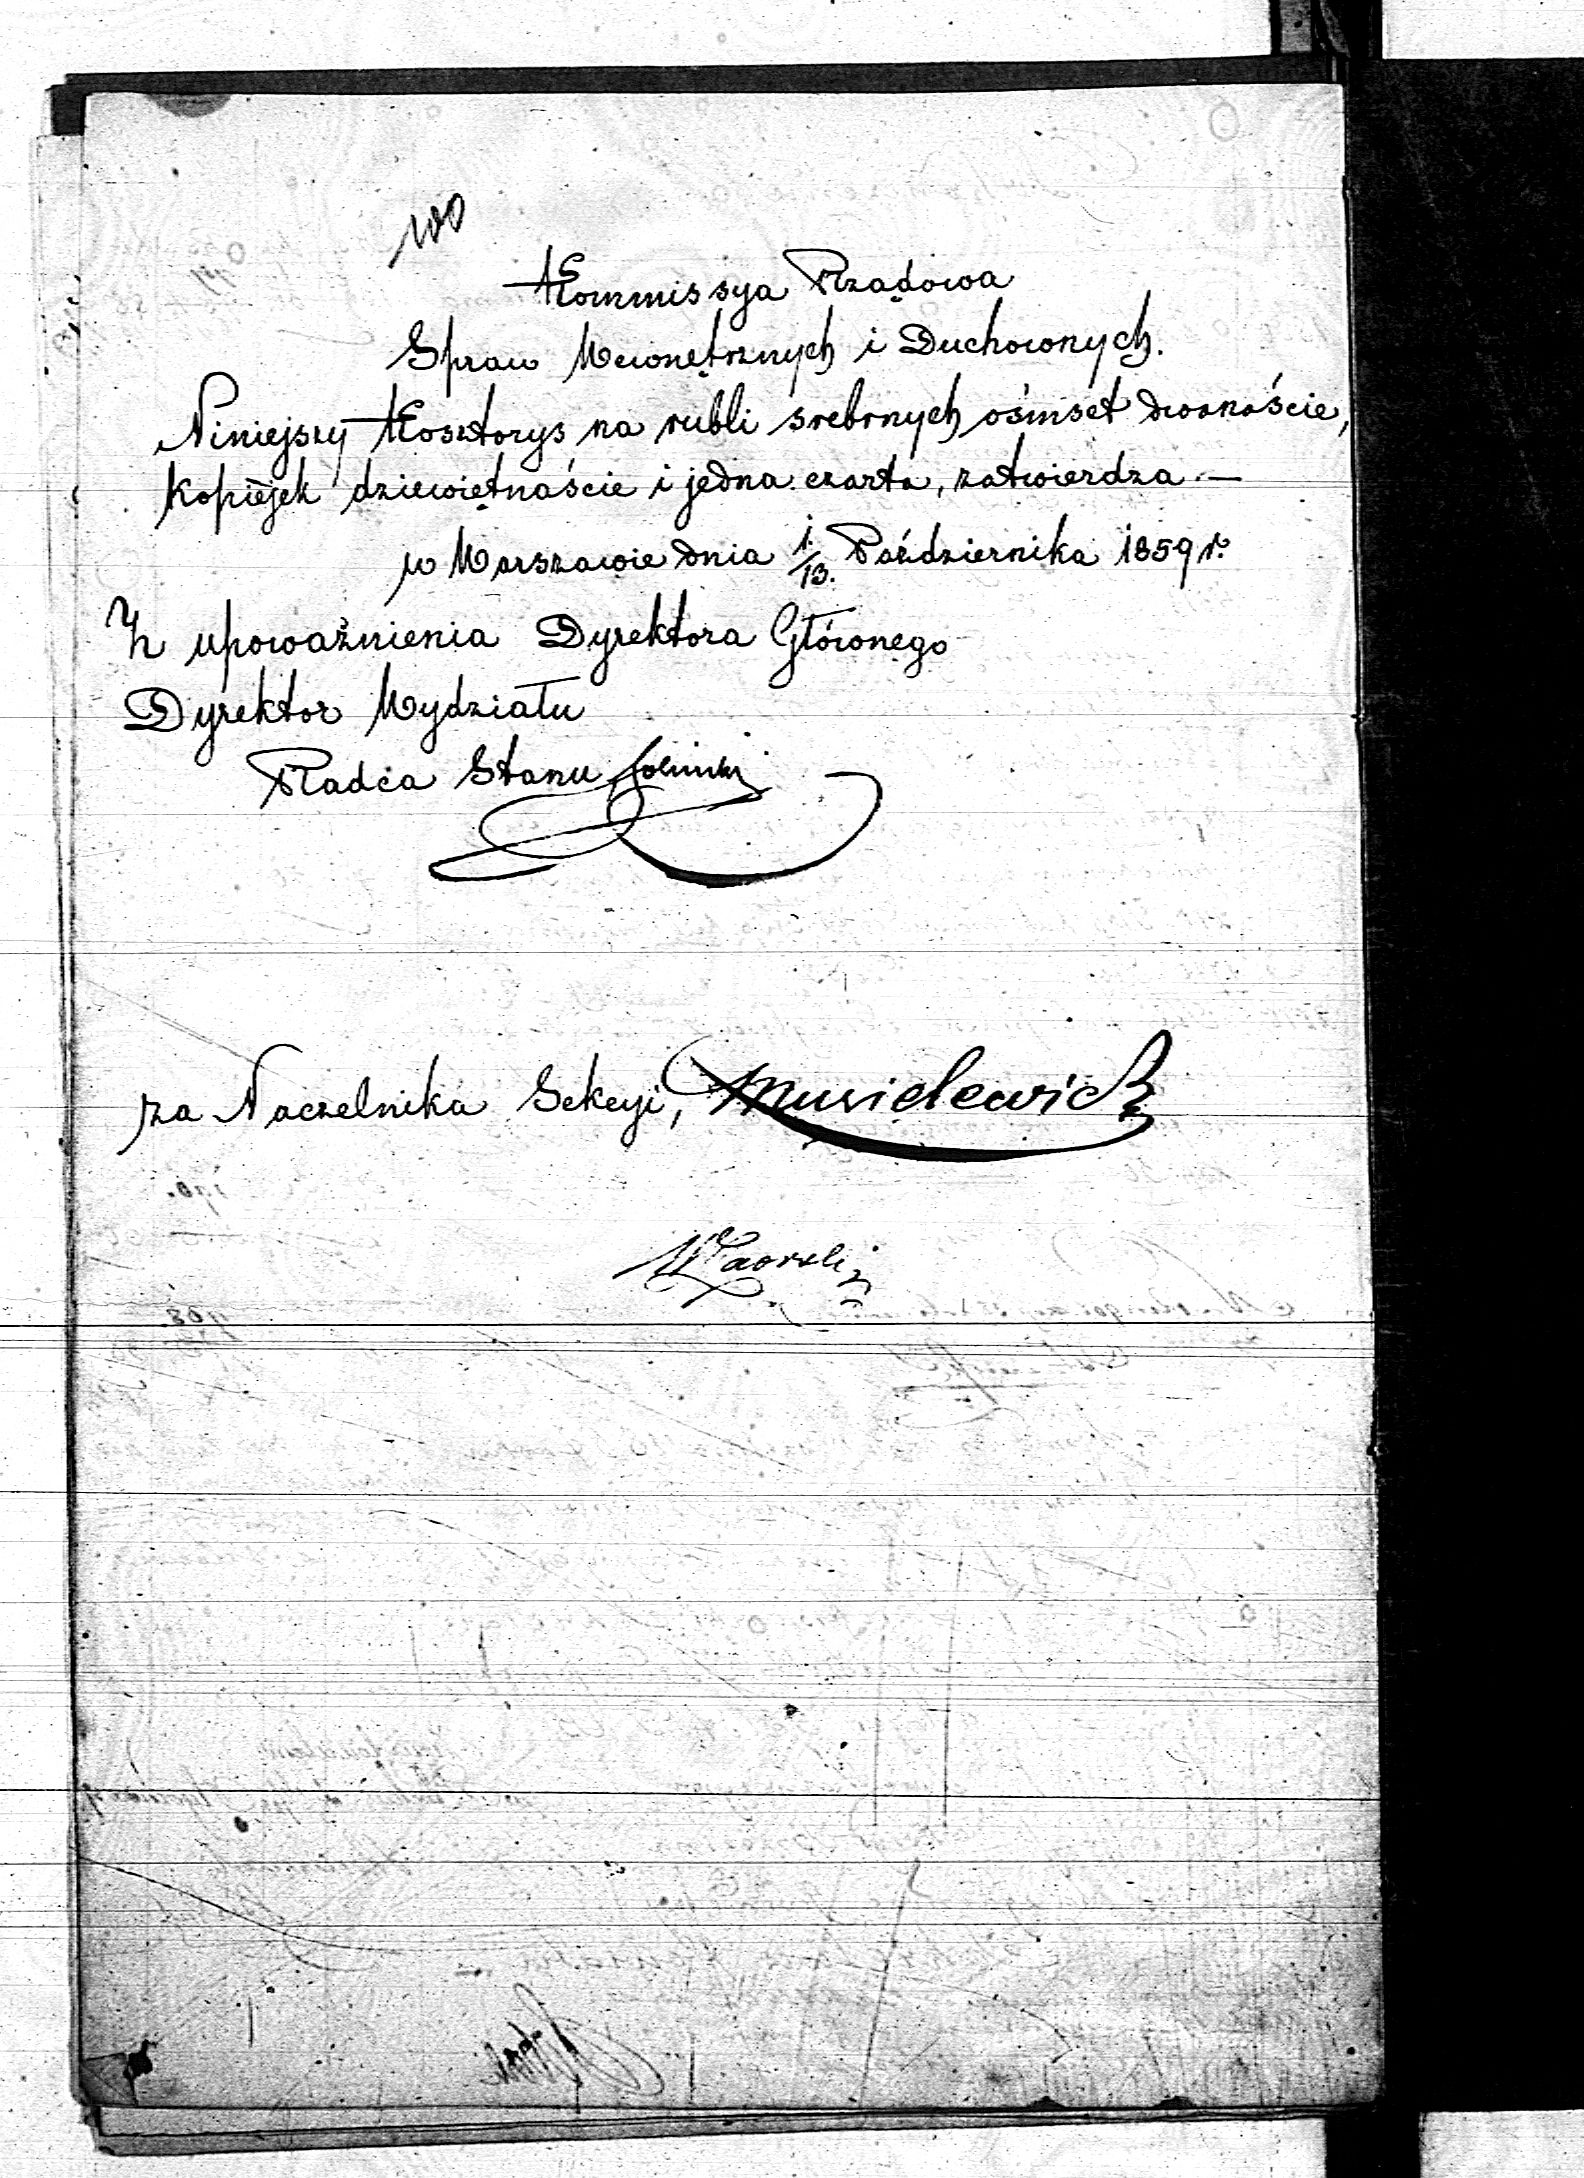 100
Kommissya Rządowa
Spraw Wewnętrznych i Duchownych.
Niniejszy Kosztorys na rubli srebrnych ośmset dwanaście,
kopiejek dziewiętnaście i jedna czarta, zatwierdza. —
w Warszawie dnia 1/13. Października 1859 r.
Z upoważnienia Dyrektora Głównego
Dyrektor Wydziału
Radca Stanu
za Naczelnika Sekcyi, Musielewicz